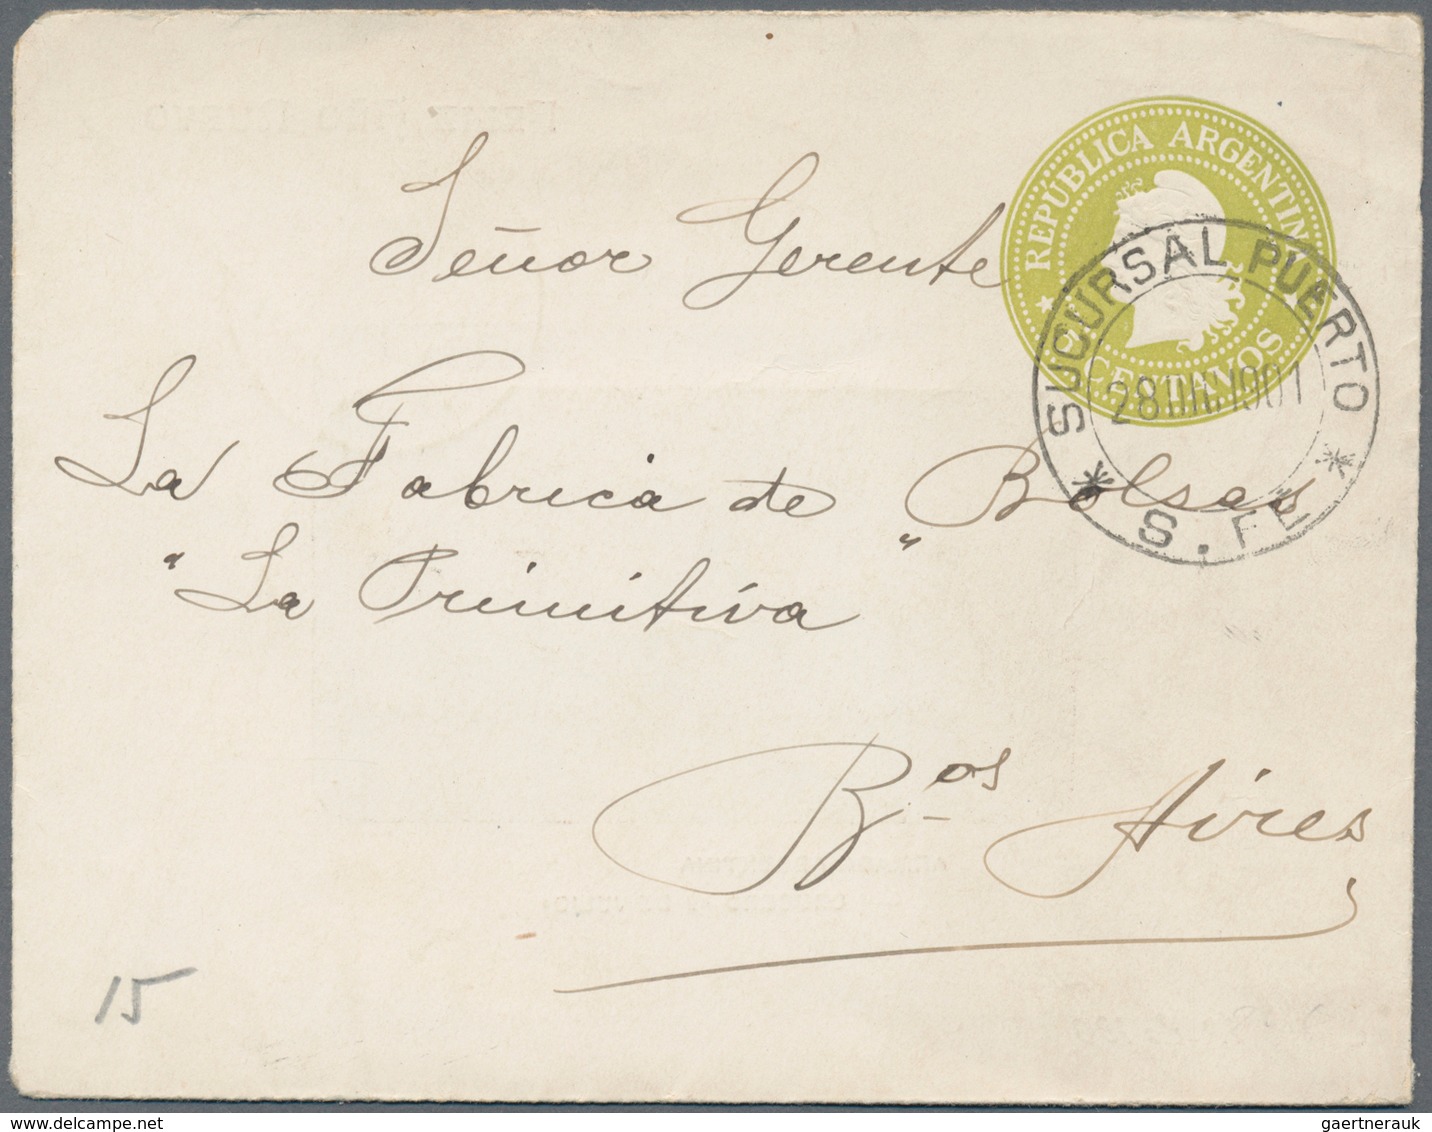 REPÚBLICA ARGENTINA
CENTAVOS
SUCURSAL PUERTO
28 DIC 1901
S. FÉ
Señor Gerente
La Fabrica de Bolsas
"La Primitiva"
Bos Aires
15
gaertnerauk